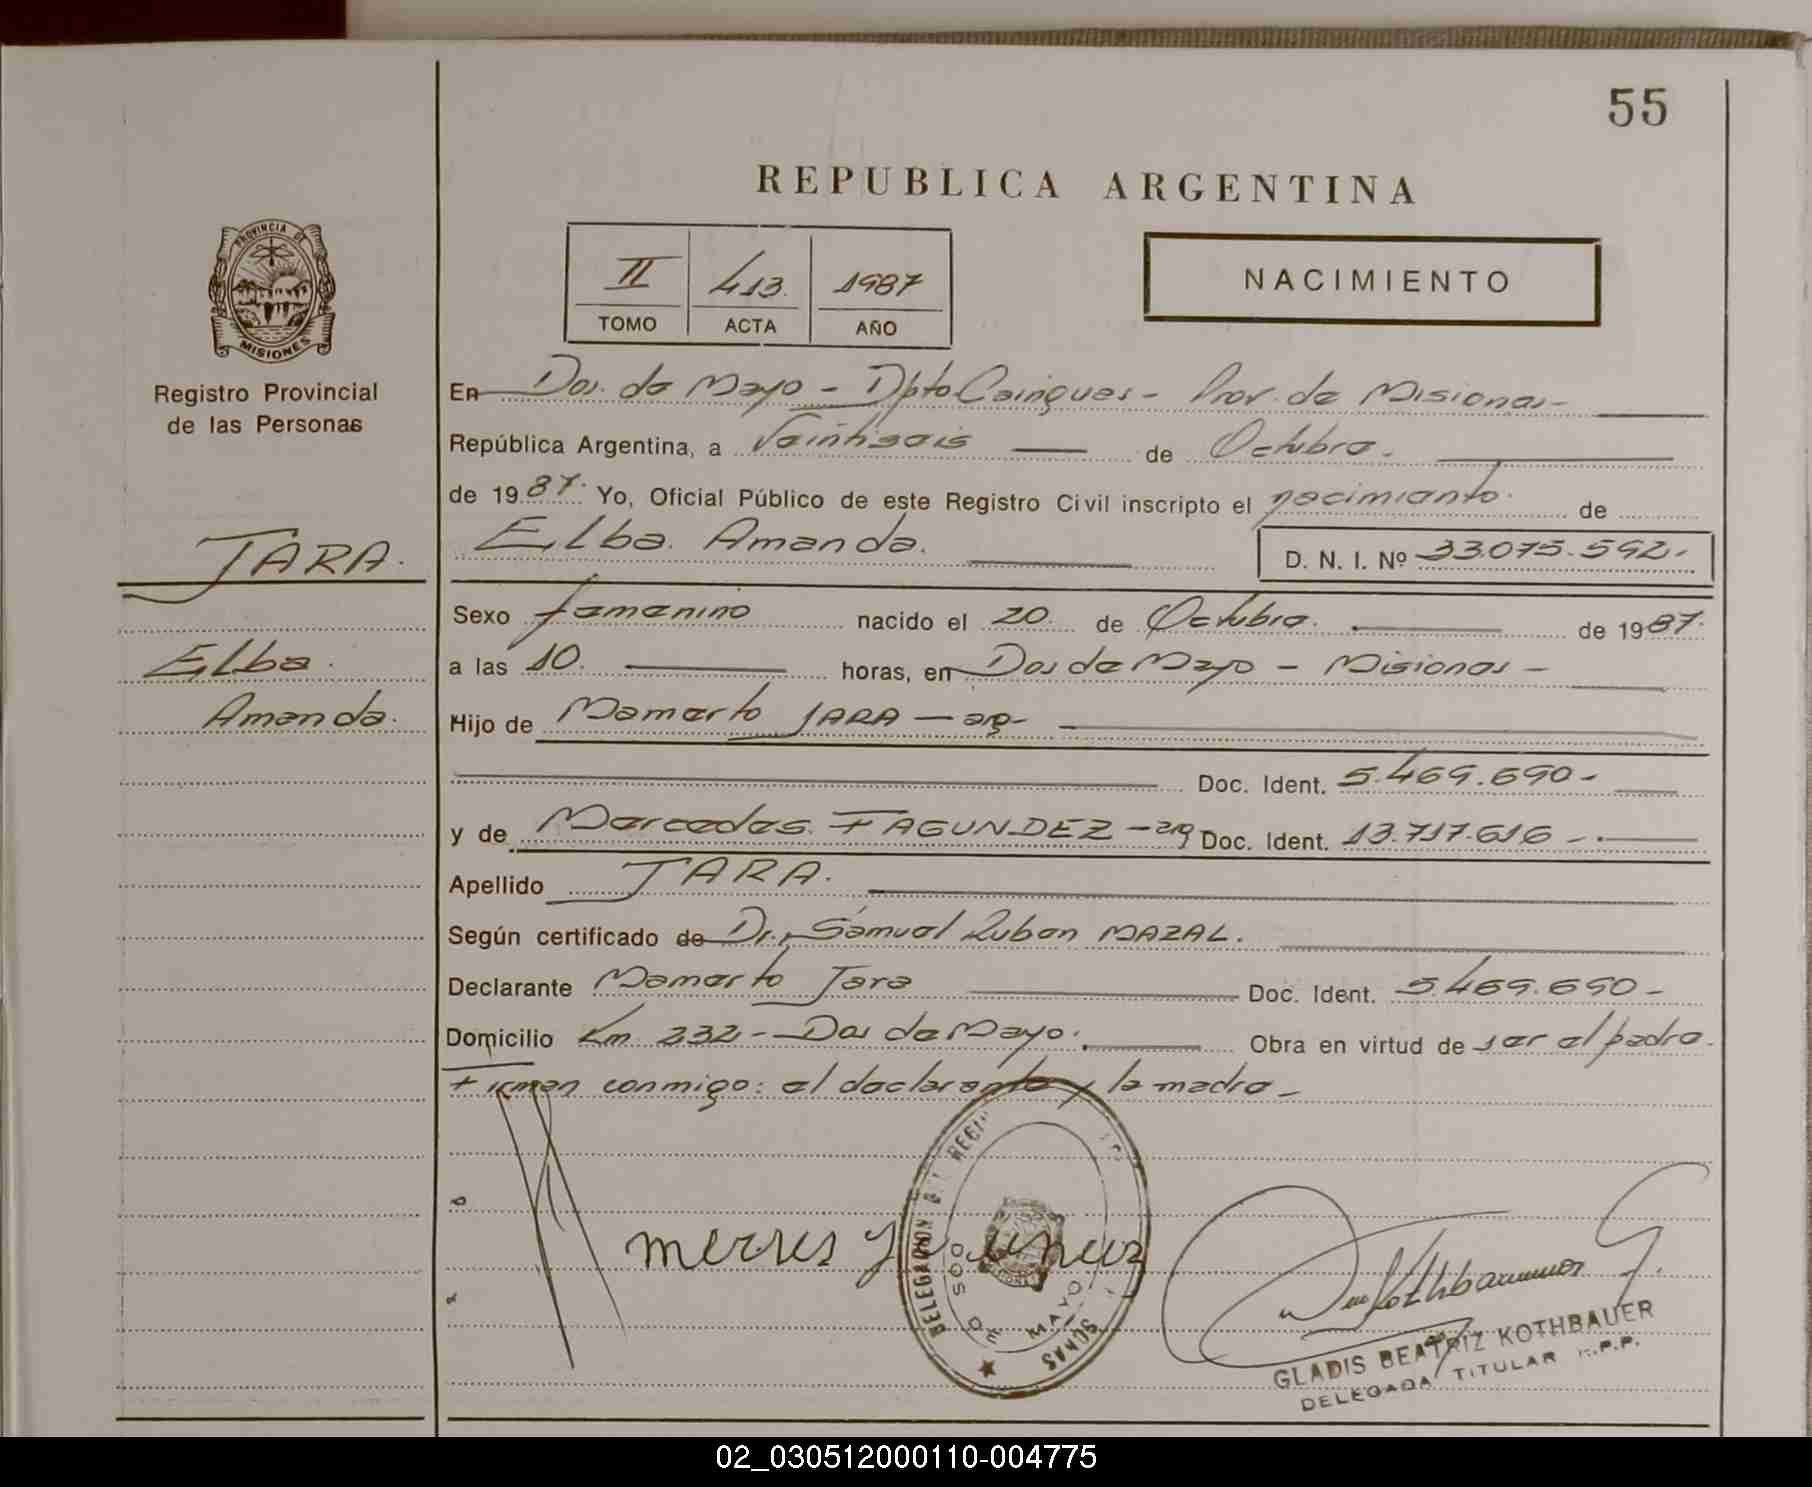 55
REPUBLICA ARGENTINA
PROVINCIA DE
MISIONES
Registro Provincial
de las Personas
II 413. 1987
TOMO ACTA AÑO
NACIMIENTO
En Dos de Mayo - Dpto Cainguas - Prov. de Misiones -
República Argentina, a Veintiseis de Octubre.
de 1987. Yo, Oficial Público de este Registro Civil inscripto el nacimiento de
JARA.
Elba Amanda.
D. N. I. Nº 33.075.592.
Sexo femenino nacido el 20 de Octubre. de 1987.
Elba
Amanda.
a las 10. horas, en Dos de Mayo - Misiones -
Hijo de Mamerto JARA - arg-
Doc. Ident. 5.469.690-
y de Mercedes FAGUNDEZ - arg Doc. Ident. 13.717.616 -
Apellido JARA.
Según certificado de Dr. Samuel Ruben MAZAL.
Declarante Mamerto Jara Doc. Ident. 5.469.690-
Domicilio Km 232 - Dos de Mayo. Obra en virtud de ser el padre.
Firman conmigo: el declarante y la madre -
DELEGACION DEL REGI
DOS DE MAYO
GLADIS BEATRIZ KOTHBAUER
DELEGADA TITULAR R.P.P.
02_030512000110-004775